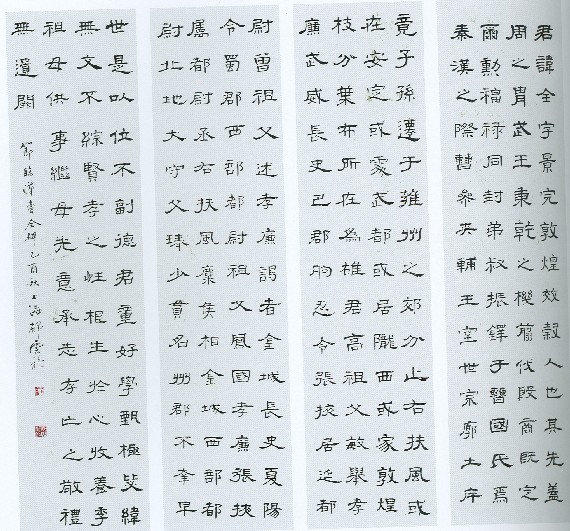 君諱全字景完敦煌效穀人也其先蓋
周之胄武王秉乾之機翦伐殷商既定
爾勳福祿同封弟叔振鐸于曹國氏焉
秦漢之際曹參夾輔王室世宗廓土斥
竟子孫遷于雍州之郊分止右扶風或
在安定或處武都或居隴西或家敦煌
枝分葉布所在為雄君高祖父敏舉孝
廉武威長史巴郡朐忍令張掖居延都
尉曾祖父述孝廉謁者金城長史夏陽
令蜀郡西部都尉祖父鳳國孝廉張掖
屬都尉丞右扶風麋侯相金城西部都
尉北地大守父琫少貫名州郡不幸早
世是以位不副德君童好學甄極毖緯
無文不綜賢孝之性根生於心收養季
祖母供事繼母先意承志存亡之敬禮
無遺闕
節臨漢曹全碑乙酉秋上海